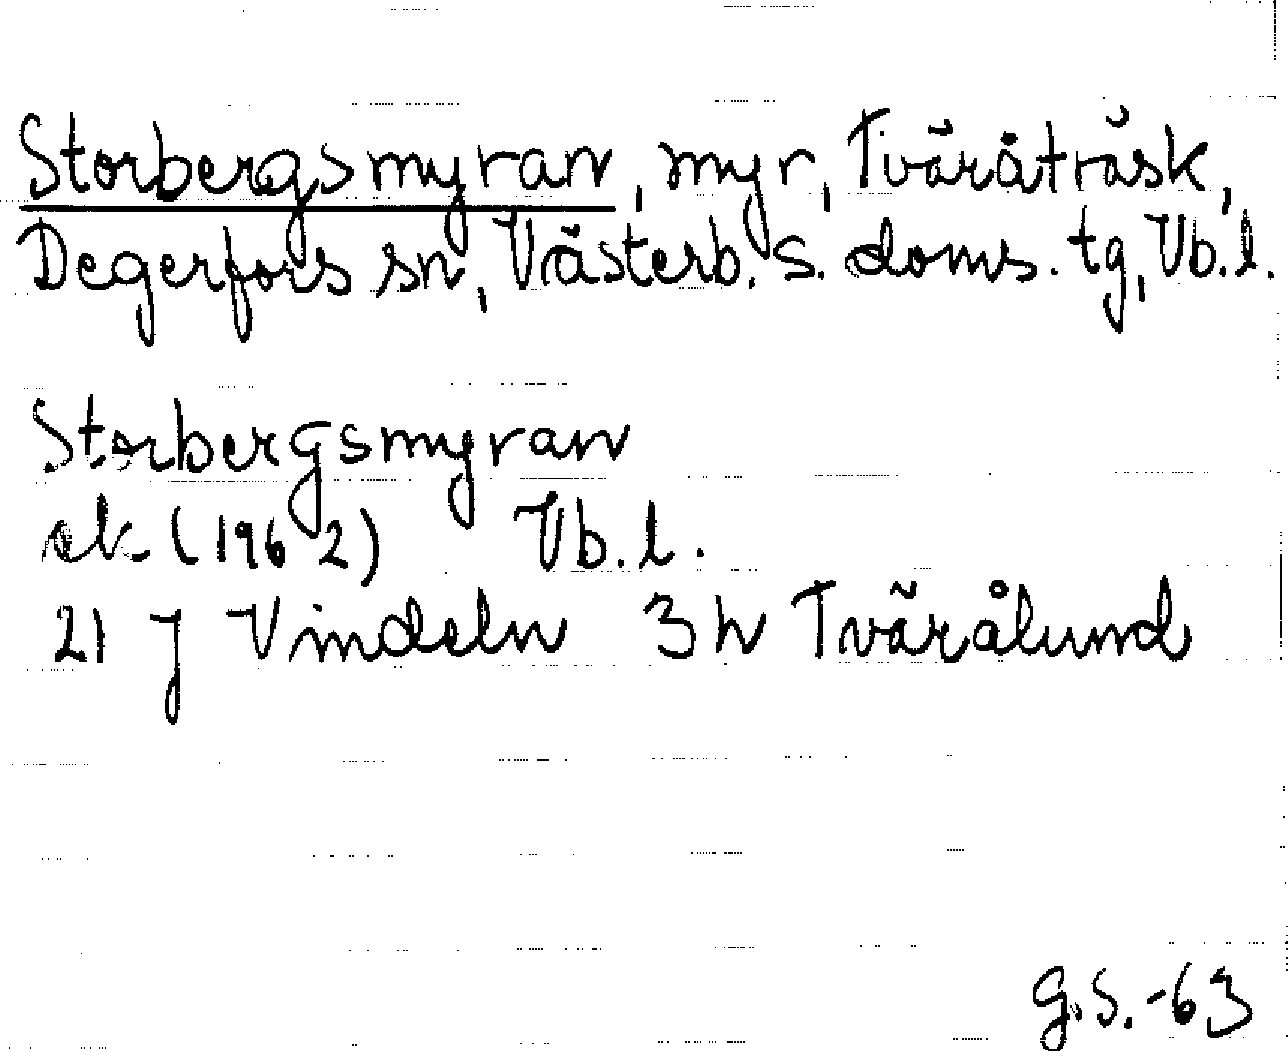 Storbergsmyran, myr, Tväråträsk,
Degerfors sn, Västerb. s. doms. tg, Vb.l.
Storbergsmyran
ek (1962) Vb.l.
21 J Vindeln 3 h Tvärålund
G.S.-63